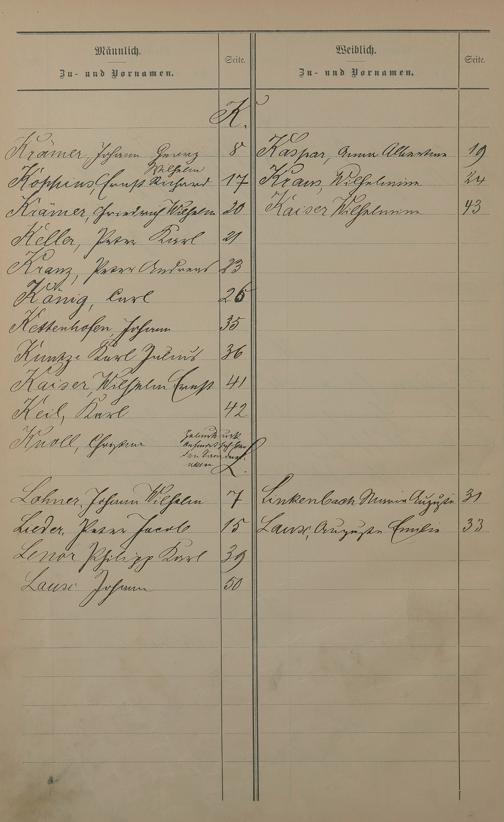 Männlich.
Zu- und Vornamen.
Seite.
Weiblich.
Zu- und Vornamen.
Seite.
K.
Krämer, Johann Georg 8
Kaspar, Anna Albertine 19
Wilhelm
Köppins, Ernst Richard 17
Kraus, Wilhelmine 24
Krämer, Friedrich Wilhelm 20
Kaiser Wilhelmine 43
Keller, Peter Karl 21
Kranz, Peter Andreas 23
König, Carl 26
Kettenhofen, Johann 35
Kuntze Karl Julius 36
Kaiser, Wilhelm Ernst 41
Keil, Karl 42
Knoll, Christine
L.
Lohner, Johann Wilhelm 7
Linkenbach Auguste 31
Lieder, Peter Jacob 15
Laux, Auguste Emilie 33
Lenor Philipp Karl 39
Laux Johann 50